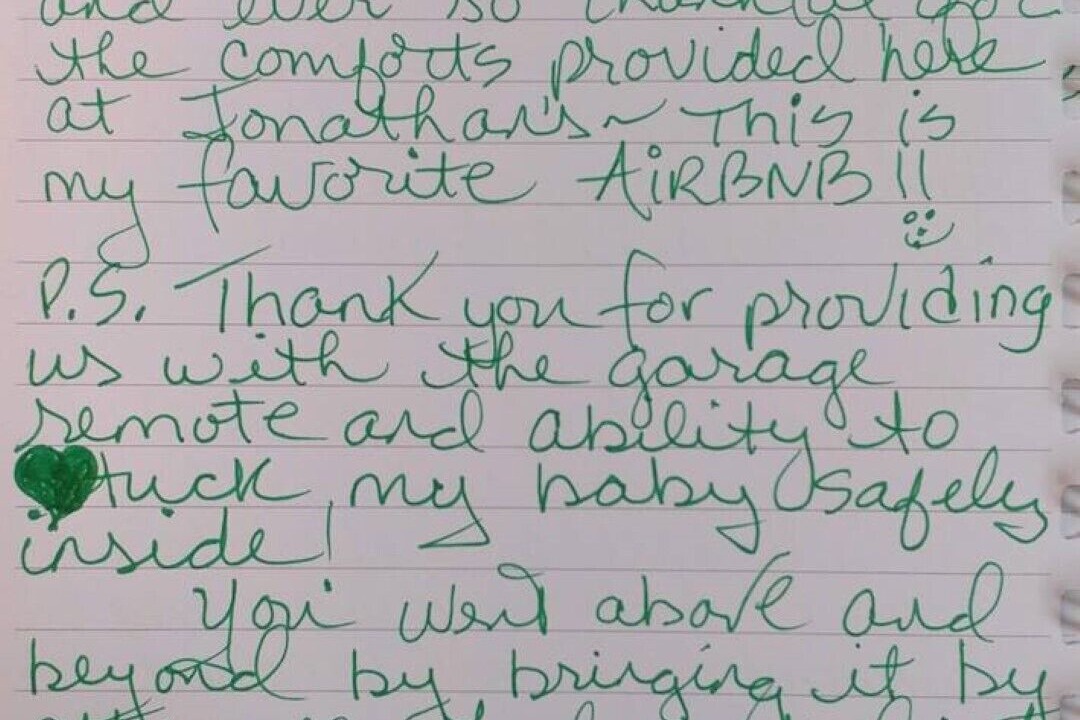 and ever so thankful for
the comforts provided here
at Jonathan's~ This is
my favorite AiRBNB!!
P.S. Thank you for providing
us with the garage
remote and ability to
tuck my baby safely
inside!
You went above and
beyond by bringing it by